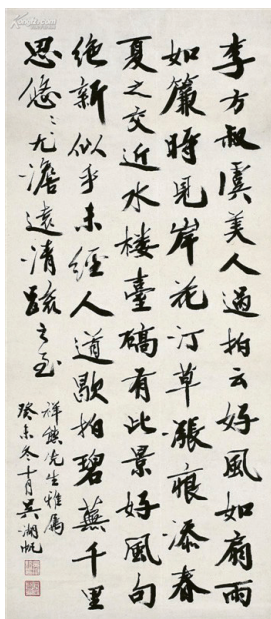 李方叔虞美人過拍云好風如扇雨
如簾時見岸花汀草漲痕添春
夏之交近水楼臺碻有此景好風句
絕新似乎未經人道歇拍碧蕪千里
思悠〻尤澹遠清疏之至
祥 先生雅属
癸未冬十月吳湖帆